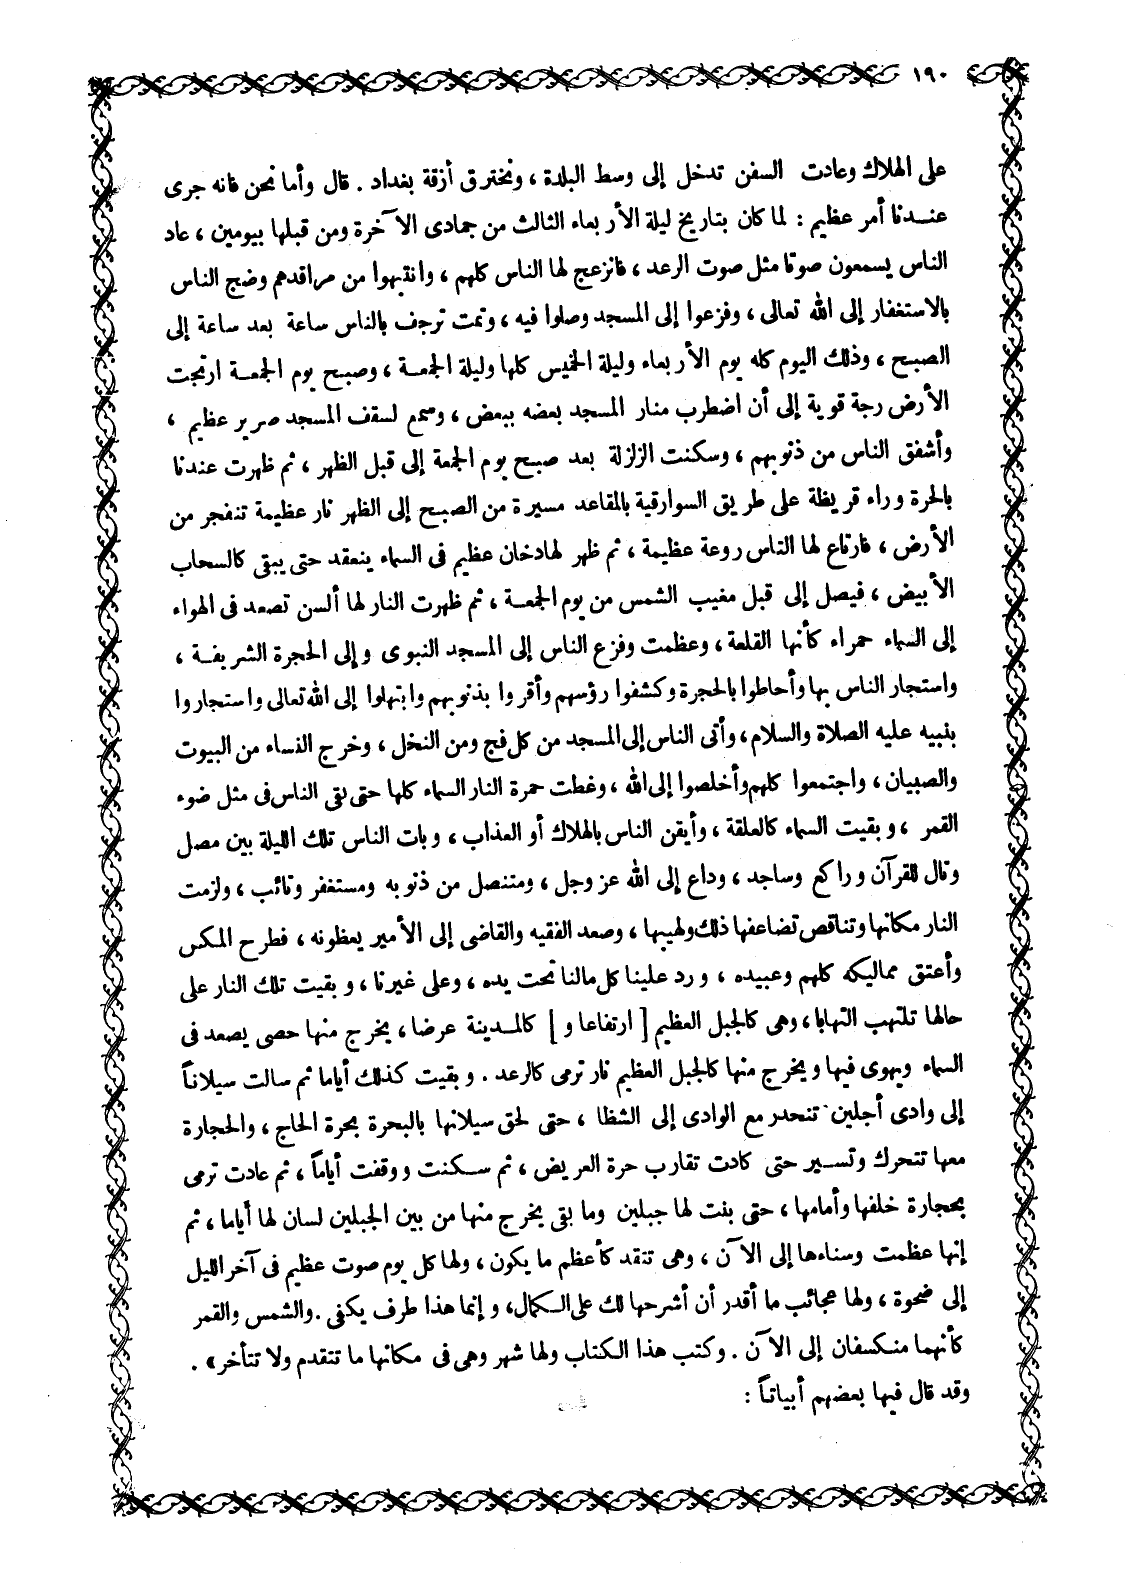 ١٩٠
على الهلاك وعادت السفن تدخل إلى وسط البلدة ، وتخترق أزقة بغداد . قال وأما نحن فانه جرى
عندنا أمر عظيم : لما كان بتاريخ ليلة الأربعاء الثالث من جمادى الآخرة ومن قبلها بيومين ، عاد
الناس يسمعون صوتا مثل صوت الرعد ، فانزعج لها الناس كلهم ، وانتبهوا من مراقدهم وضج الناس
بالاستغفار إلى الله تعالى ، وفزعوا إلى المسجد وصلوا فيه ، وتمت ترجف بالناس ساعة بعد ساعة إلى
الصبح ، وذلك اليوم كله يوم الأربعاء وليلة الخميس كلها وليلة الجمعة ، وصبح يوم الجمعة ارتجت
الأرض رجة قوية إلى أن اضطرب منار المسجد بعضه ببعض ، وسمع لسقف المسجد صرير عظيم ،
وأشفق الناس من ذنوبهم ، وسكنت الزلزلة بعد صبح يوم الجمعة إلى قبل الظهر ، ثم ظهرت عندنا
بالحرة وراء قريظة على طريق السوارقية بالمقاعد مسيرة من الصبح إلى الظهر نار عظيمة تنفجر من
الأرض ، فارتاع لها الناس روعة عظيمة ، ثم ظهر لها دخان عظيم فى السماء ينعقد حتى يبقى كالسحاب
الأبيض ، فيصل إلى قبل مغيب الشمس من يوم الجمعة ، ثم ظهرت النار لها ألسن تصعد فى الهواء
إلى السماء حمراء كأنها القلعة ، وعظمت وفزع الناس إلى المسجد النبوى وإلى الحجرة الشريفة ،
واستجار الناس بها وأحاطوا بالحجرة وكشفوا رؤسهم وأقروا بذنوبهم وابتهلوا إلى الله تعالى واستجاروا
بنبيه عليه الصلاة والسلام، وأتى الناس إلى المسجد من كل فج ومن النخل ، وخرج النساء من البيوت
والصبيان ، واجتمعوا كلهم وأخلصوا إلى الله ، وغطت حمرة النار السماء كلها حتى بقى الناس فى مثل ضوء
القمر ، وبقيت السماء كالعلقة ، وأيقن الناس بالهلاك أو العذاب ، وبات الناس تلك الليلة بين مصل
وتال للقرآن وراكع وساجد ، وداع إلى الله عز وجل ، ومتنصل من ذنوبه ومستغفر وتائب ، ولزمت
النار مكانها وتناقص تضاعفها ذلك ولهيبها ، وصعد الفقيه والقاضى إلى الأمير يعظونه ، فطرح المكس
وأعتق مماليكه كلهم وعبيده ، ورد علينا كل مالنا تحت يده ، وعلى غيرنا ، وبقيت تلك النار على
حالها تلتهب التهابا ، وهى كالجبل العظيم [ ارتفاعا و ] كالمدينة عرضا ، يخرج منها حصى يصعد فى
السماء ويهوى فيها ويخرج منها كالجبل العظيم نار ترمى كالرعد . وبقيت كذلك أياما ثم سالت سيلاناً
إلى وادى أجلين تنحدر مع الوادى إلى الشظا ، حتى لحق سيلانها بالبحرة بحرة الحاج ، والحجارة
معها تتحرك وتسير حتى كادت تقارب حرة العريض ، ثم سكنت ووقفت أياماً ، ثم عادت ترمى
بحجارة خلفها وأمامها ، حتى بنت لها جبلين وما بقى يخرج منها من بين الجبلين لسان لها أياما ، ثم
إنها عظمت وسناءها إلى الآن ، وهى تتقد كأعظم ما يكون ، ولها كل يوم صوت عظيم فى آخر الليل
إلى ضحوة ، ولها عجائب ما أقدر أن أشرحها لك على الكمال، وإنما هذا طرف يكفى . والشمس والقمر
كأنهما منكسفان إلى الآن . وكتب هذا الكتاب ولها شهر وهى فى مكانها ما تتقدم ولا تتأخر» .
وقد قال فيها بعضهم أبياتاً :